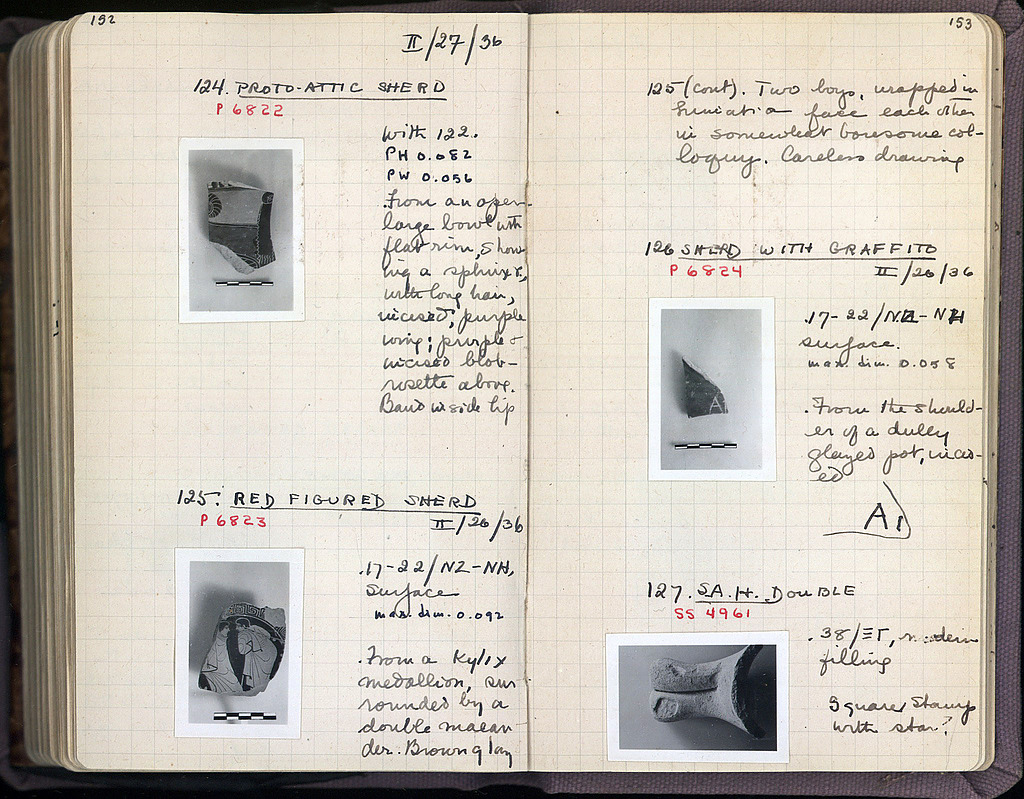 152
II/27/36
124. PROTO-ATTIC SHERD
P 6822
With 122.
PH 0.082
PW 0.056
From an open
large bowl with
flat rim, show
ing a sphinx r.,
with long hair,
incised; purple
wing; purple &
incised blob-
rosette above.
Band inside lip
125. RED FIGURED SHERD
P 6823
II/26/36
.17-22/NZ-NH,
Surface
max. dim. 0.092
.From a Kylix
medallion, sur
rounded by a
double maean
der. Brown glaz
153
125 (cont). Two boys, wrapped in
himatia face each other
in somewhat boresome col-
loquy. Careless drawing
126 SHERD WITH GRAFFITO
P 6824
II/26/36
.17-22/NZ-NH
surface.
max. dim. 0.058
.From the should-
er of a dully
glazed pot, incis-
ed
AI
127. S.A.H. DOUBLE
SS 4961
.38/ΞΓ, modern
filling
Square Stamp
with star?